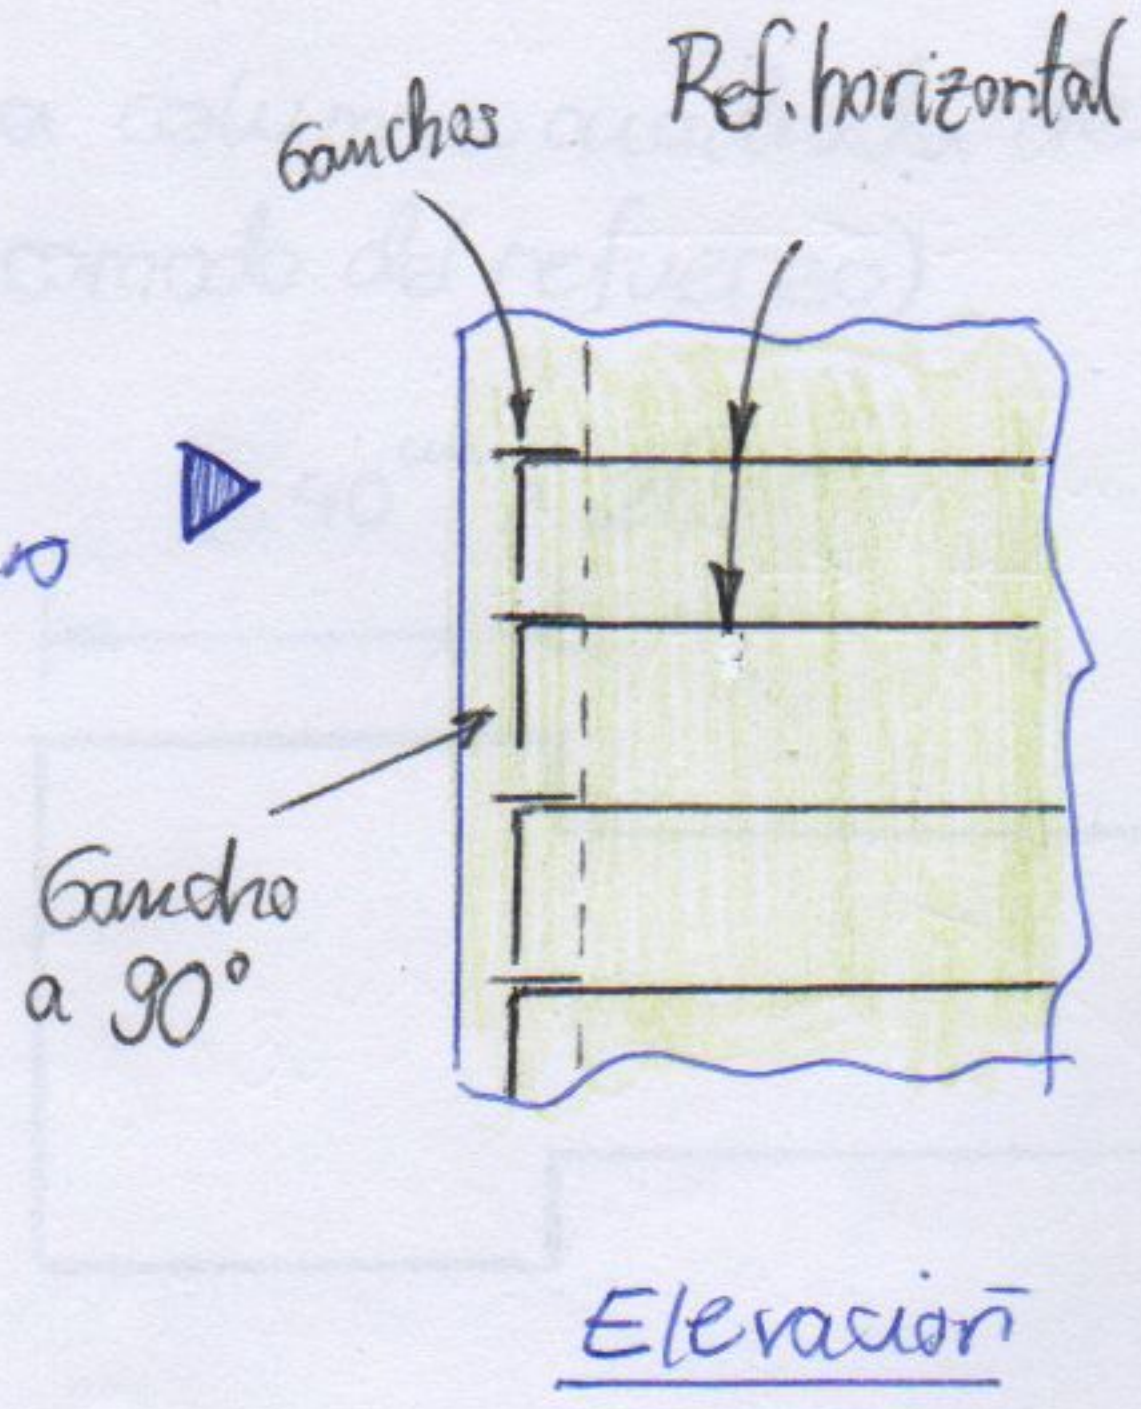 Ganchos
Ref. horizontal
Gancho
a 90°
Elevación